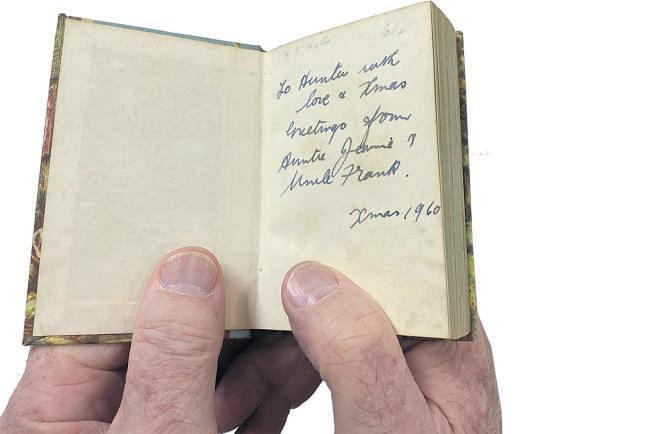 6/-
To Hunter with
love & Xmas
Greetings from
Auntie &
Uncle Frank.
Xmas 1960